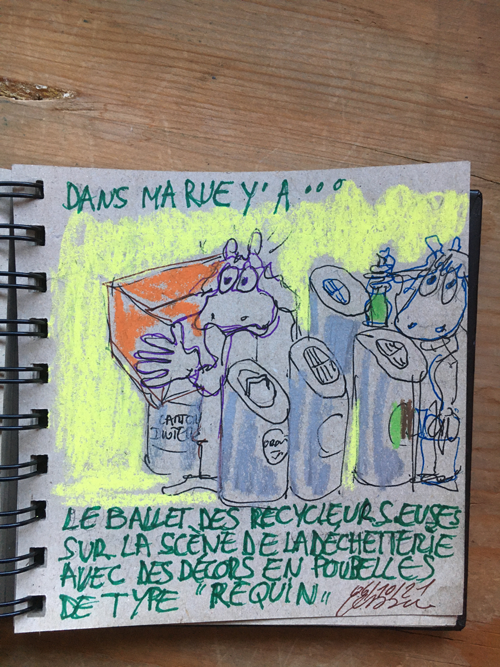 DANS MA RUE Y'A...
CARTON
LE BALLET DES RECYCLEURS.EUSES
SUR LA SCÈNE DE LA DÉCHETTERIE
AVEC DES DÉCORS EN POUBELLES
DE TYPE "REQUIN"
06/10/21